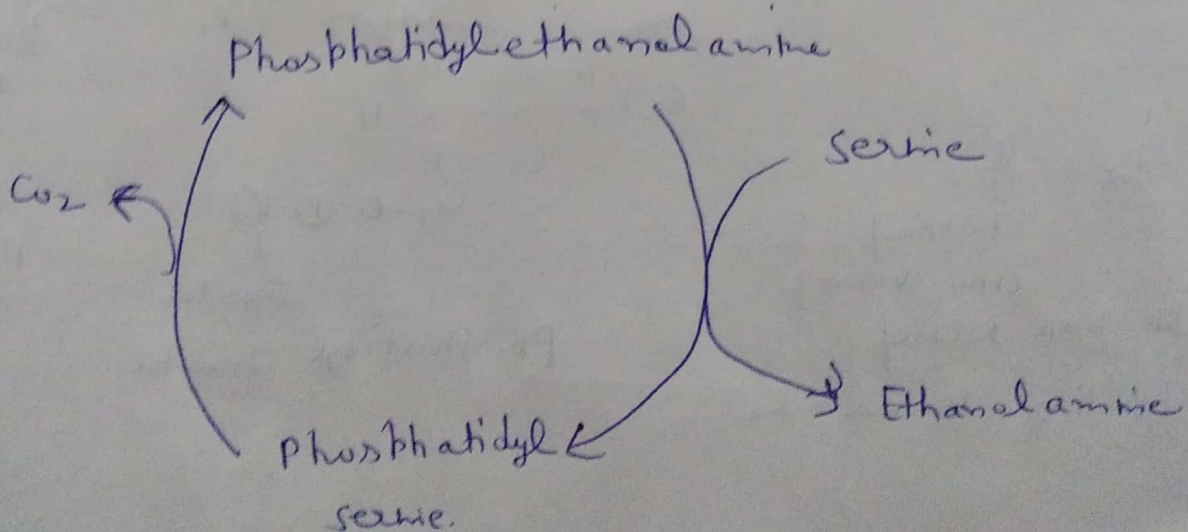 Phosphatidylethanolamine
serine
CO2
Ethanolamine
Phosphatidyl
serine.